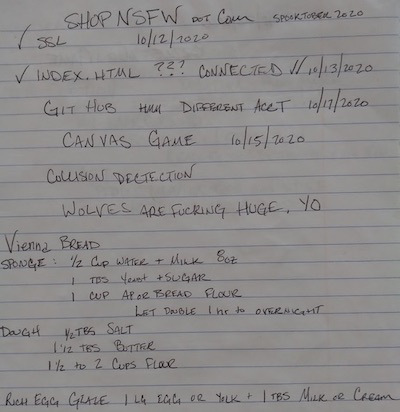 SHOP NSFW DOT COM SPOOKTOBER 2020
✓ SSL 10/12/2020
✓ INDEX.HTML ??? CONNECTED // 10/13/2020
GIT HUB HMM DIFFERENT ACCT 10/17/2020
CANVAS GAME 10/15/2020
COLLISION DECTECTION
WOLVES ARE FUCKING HUGE, YO
Vienna BREAD
SPONGE: 1/2 CUP WATER + MILK 8OZ
1 TBS YEAST + SUGAR
1 CUP AP OR BREAD FLOUR
LET DOUBLE 1 hr to OVERNIGHT
DOUGH 1/2 TBS SALT
1 1/2 TBS BUTTER
1 1/2 to 2 CUPS FLOUR
RICH EGG GLAZE 1 LG EGG OR YOLK + 1 TBS MILK OR CREAM